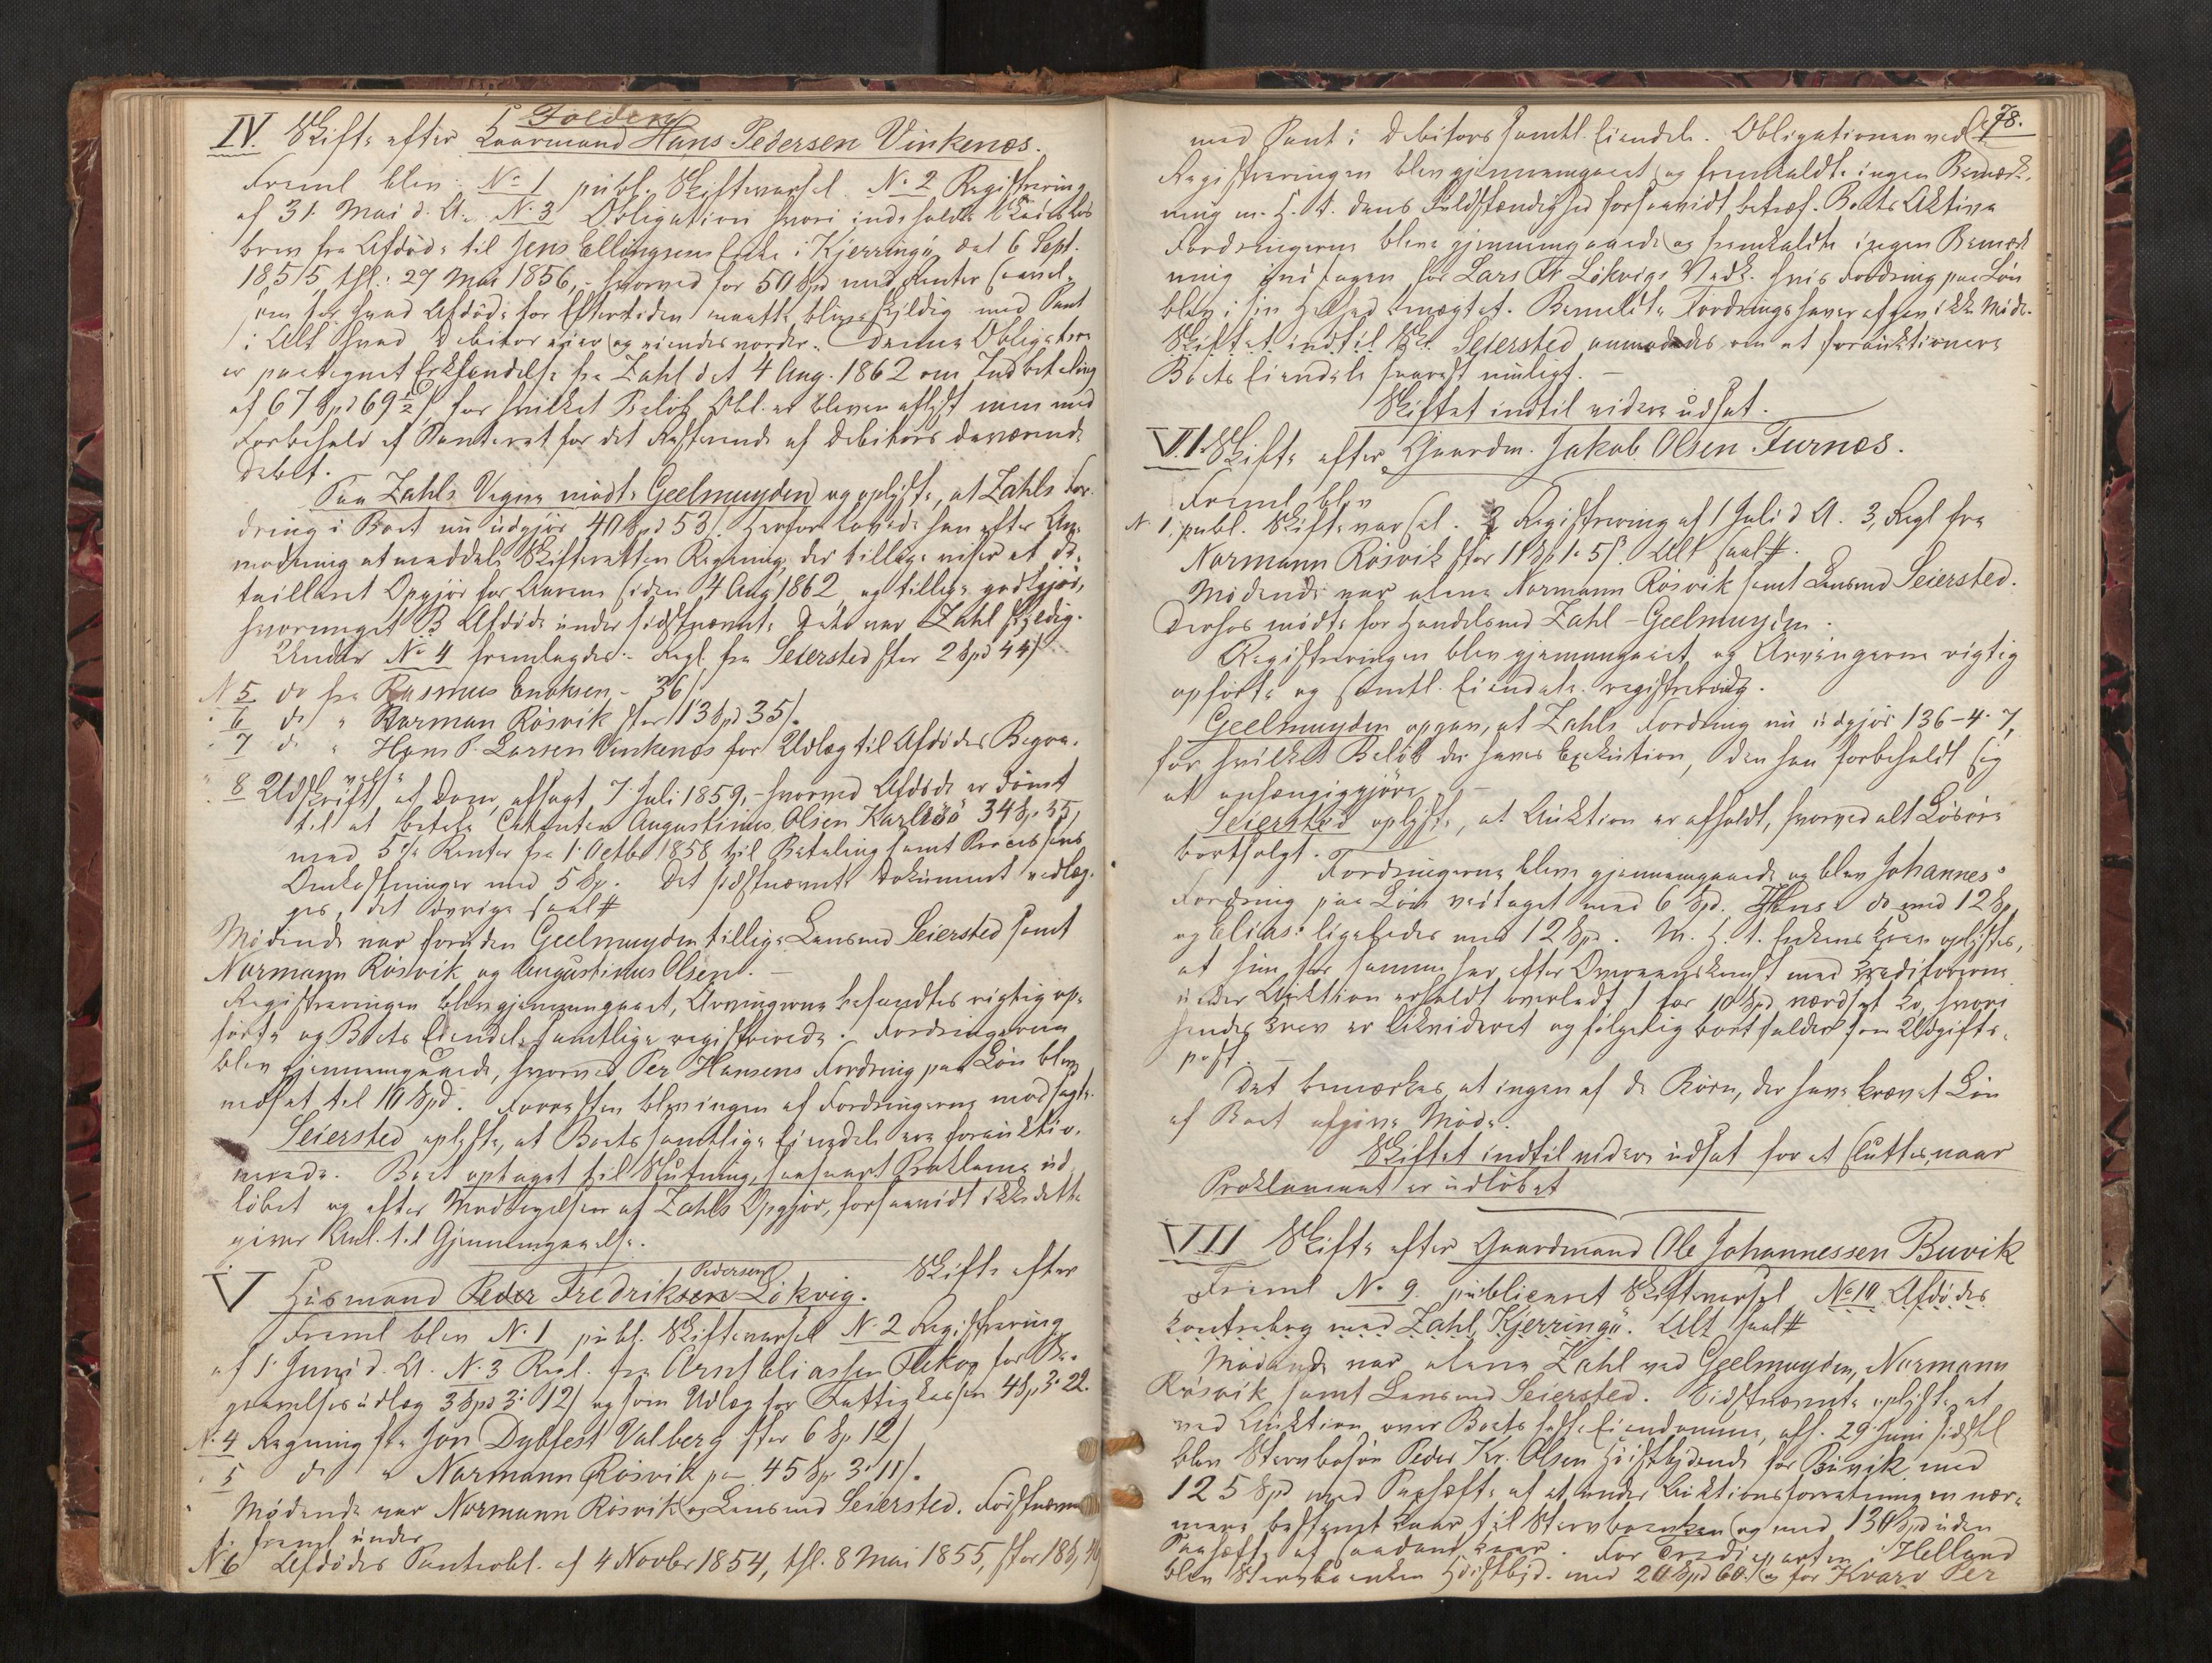 Folden
IV. Skifte efter Kaarmand Hans Pedersen Vinkenes.
Freml blev: No 1 publ. Skiftevarsel. No 2 Registrering
af 31 Mai d. A. N. 3 Obligation hvori indeholdt
brev fra Afdøde til Jens Ellingsens Enke i Kjerringø dat 6 Sept.
1855 thl. 27 Mai 1856, hvorved for 50 Spd med Renter saavel
som for hvad Afdøde for Eftertiden maatte blive skyldig med Pant
i Alt hvad Debitor eier og eiendes vorder. Denne Obligation
er paategnet Erkjendelse fra Zahl dat 4 Aug. 1862 om Indbetaling
af 67 Spd 69½ s for hvilket Beløb Obl. er bleven aflyst men med
Forbehold af Panteret for det Resterende af Debitors daværende
Debet.
Paa Zahls Vegne mødte Geelmuyden og oplyste, at Zahls For-
dring i Boet nu udgjør 40 Spd 53 s. Herfor lovede han efter An-
modning at meddele Skifteretten Regning, der tillige viser et de-
tailleret Opgjør for Aarene siden 4 Aug 1862, og tillige godtgjør,
hvormeget Afdøde under sidstnævnte Dato var Zahl skyldig.
Under No 4 fremlagdes Regl. fra Seiersted stor 2 Spd 44 s
N 5 do fra Rasmus Enoksen - 36 s
" 6 do " Norman Røsvik stor 13 Spd 35 s.
" 7 do " Hans P. Larsen Vinkenes for Udlæg til Afdødes Begra-
velse
" 8 Udskrift af Dom, afsagt 7 Juli 1859, hvorved Afdøde er dømt
til at betale Citanten Augustinus Olsen Karlsøö 34 Sp. 35 s
med 5 % Renter fra 1 Octbr 1858 til Betaling samt Processens
Omkostninger med 5 Sp. Det sidstnævnte Dokument vedlæg-
ges, det øvrige saal #
Mødende var foruden Geelmuyden tillige Lensmd Seiersted samt
Normann Røsvik og Augustinus Olsen. —
Registreringen blev gjennemgaaet, Arvingerne befandtes rigtig op-
førte og Boets Eiendele samtlige registrerede. Fordringerne
blev gjennemgaaede, hvorved Per Hansens Fordring paa Løn blev
nedsat til 10 Spd. Forresten blev ingen af Fordringerne modsagte.
Seiersted oplyste, at Boets samtlige Eiendele ere forauktio-
nerede. Boet optaget til Slutning, saasnart Proklama ud-
løbet og efter Modtagelsen af Zahls Opgjør, forsaavidt ikke dette
giver Anl. til Gjennemgaaelse.
V Skifte efter
Husmand Peder Fredriksen Pedersen Løkvig.
Freml blev N. 1 publ. Skiftevarsel N. 2 Registrering
af 1 Juni d. A. N. 3 Regl. fra Arnt Eliassen for Be-
gravelsesudlæg 3 Spd 3. 12 s og som Udlæg for Fattigkassen 4 Sp 3. 22.
N. 4 Regning fra Jon Dybfest Valberg stor 6 Sp. 12 s
" 5 do " Normann Røsvik paa 45 Sp 3. 11 s.
Mødende var Normann Røsvik og Lensmd Seiersted. Førstnævn-
te freml under
N 6 Afdødes Panteobl. af 4 Novbr 1854, thl. 8 Mai 1855, stor
78.
med Pant i Debitors samtl. Eiendele. Obligationen vedl.
Registreringen blev gjennemgaaet og fremkaldte ingen Bemærk-
ning m. H. t. dens Fuldstændighed forsaavidt betræf. Boets Aktiva
Fordringerne bleve gjennemgaaede og fremkaldte ingen Bemærk
ning undtagen for Lars Fr Løkvigs Vedk. hvis Fordring paa Løn
blev i sin Helhed benægtet. Bemeldte Fordringshaver afgav ikke Møde.
Skiftet indtil Lsmd. Seiersted anmodedes om at forauktionere
Boets Eiendele snarest muligt. —
Skiftet indtil videre udsat.
VI. Skifte efter Gaardm. Jakob Olsen Furnes.
Freml. blev
N. 1. publ. Skiftevarsel. 2 Registrering af 1 Juli d A. 3, Regl fra
Normann Røsvik stor 11 Sp 1. 5 s. Alt saal #.
Mødende var alene Normann Røsvik samt Lensmd Seiersted.
Derhos mødte for Handelsmd Zahl - Geelmuyden.
Registreringen blev gjennemgaaet, og Arvingerne rigtig
opførte og samtl. Eiendele registrerede.
Geelmuyden opgav, at Zahls Fordring nu udgjør 136 - 4. 7,
for hvilket Beløb der haves Exekution, den han forbeholdt sig
at anhængiggjøre. —
Seiersted oplyste, at Auktion er afholdt, hvorved alt Løsøre
bortsolgt.
Fordringerne bleve gjennemgaaede og blev Johannes's
Fordring paa Løn vedtaget med 6 Spd. Hans's do med 12 Sp
og Elias's ligeledes med 12 Spd. M. H. t. Enkens Krav oplystes,
at hun for samme har efter Overenskomst med Kreditorerne
under Auktion erholdt overladt 1 for 10 Spd værdsat Ko, hvori
hendes Krav er likvideret og følgelig bortfalder som Udgifts-
post. —
Det bemærkes at ingen af de Børn, der have krævet Løn
af Boet afgive Møde.
Skiftet indtil videre udsat for at sluttes, naar
Proklamaet er udløbet
VII Skifte efter Gaardmand Ole Johannessen Buvik
Freml No 9. publiceret Skiftevarsel No 10 Afdødes
Kontrabog med Zahl, Kjerringø. Alt saal #
Mødende var alene Zahl ved Geelmuyden, Normann
Røsvik samt Lensmd Seiersted. Sidstnævnte oplyste, at
ved Auktion over Boets faste Eiendomme, afh. 29 Juni sidstl
blev Stervbosøn Peder Kr. Olsen Høistbydende for Buvik med
125 Spd med Paahæfte af et under Auktionsforretningen nær-
mere bestemt Kaar til Stervboenken og med 130 Spd uden
Paahæfte af saadant Kaar. For Helland
blev Stervboenken Høistbyd. med 20 Spd 60 s og for Kvarv Per